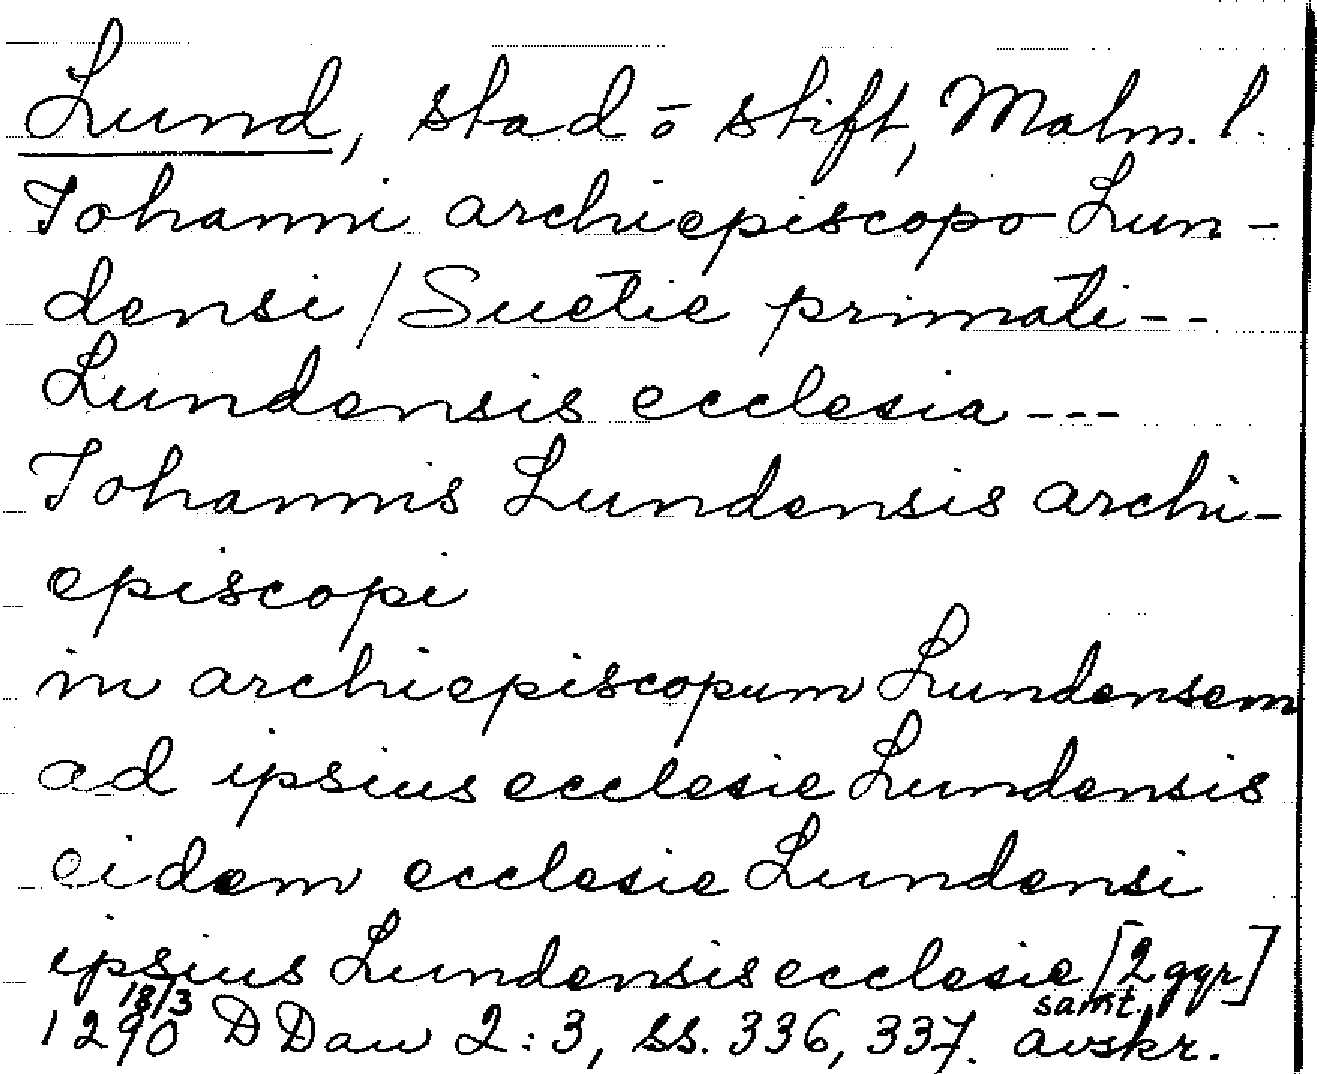 Lund, stad o stift, Malm. l.
Johanni archiepiscopo Lun-
densi / Suetie primati - -
Lundensis ecclesia - - -
Johannis Lundensis archi-
episcopi
in archiepiscopum Lundensem
ad ipsius ecclesie Lundensis
eidem ecclesie Lundensi
ipsius Lundensis ecclesie [2 ggr]
18/3 samt.
1290 DDan 2:3, ss. 336, 337. avskr.